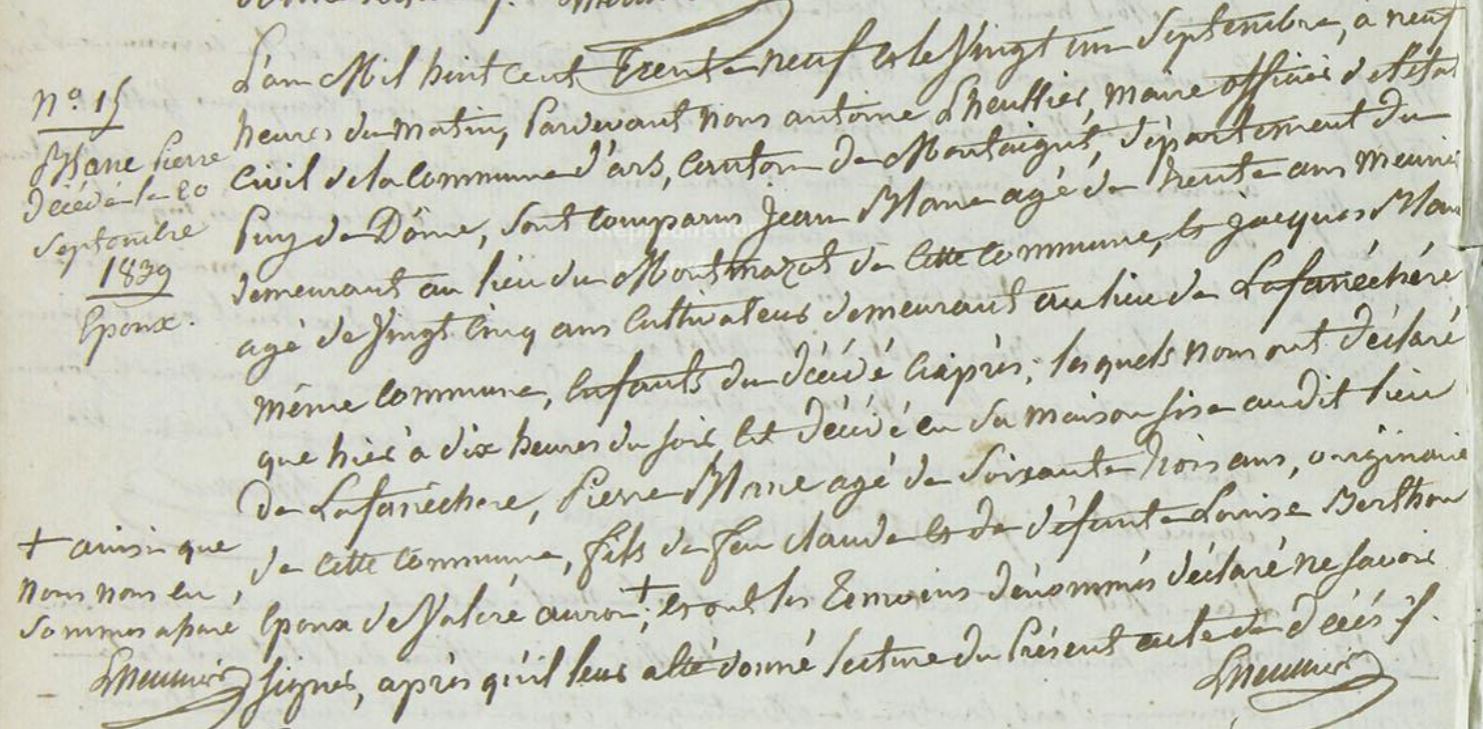 n.o 15
Mane Pierre
décédé le 20
Septembre
1839
Epoux.
L'an Mil huit cent Trente neuf et le Vingt un Septembre, a neuf
heures du matin, Pardevant nous antoine Lheullier, maire officier d'etat
Civil de la Commune d'ars, Canton de Montaigut, département du
Puy de Dôme, sont comparus Jean Mane agé de trente ans meunier
demeurant au lieu du Montmazot de Cette Commune, et jacques Mane
agé de Vingt Cinq ans Cultivateur demeurant au lieu de Lafanéchére
même Commune, Enfants du décédé Ciaprès; lesquels nous ont déclaré
que hier à dix heures du soir Est décédé en sa maison sise audit lieu
de Lafanéchere, Pierre Mane agé de Soixante trois ans, originaire
de Cette Commune, fils de feu claude et de défunte Louise Berthon
Epoux de Valéré auron +; et ont les Temoins dénommés déclaré ne savoir
signer, après qu'il leur a été donné lecture du Présent acte de décés ./.
+ ainsi que
nous nous en
sommes apuré